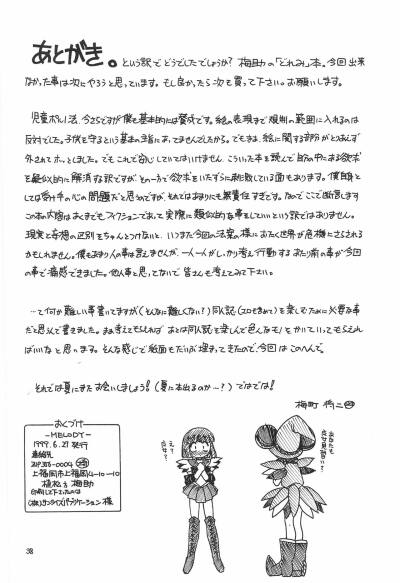 あとがき。という訳でどうでしたでしょうか? 梅助の「どれみ」本。今回出来
なかった事は次にやろうと思っています。もし良かったら次も買って下さい。お願いします。
児童ポルノ法、今さらですが僕も基本的には賛成です。絵の表現まで規制の範囲に入れるのは
反対でした。子供を守るという基本の主旨にあってませんでしたから。でもまぁ、絵に関する部分がとりあえず
外されてホッとしました。でもこれで安心していてはいけません。こういった本を読んで自分の中にある欲求
を疑似的に解消する訳ですが、その一方で欲求をいたずらに刺激している面もあります。僕自身と
しては受け手の心の問題だと思うのですが、それではあまりにも無責任すぎです。なのでここで断言します
この本の内容はあくまでもフィクションであって実際に類似的な事をしていいという訳ではありません。
現実と妄想の区別をちゃんとつけないと、いつまた今回の法案の様におたく世界が危機にさらされる
かもしれません。僕もあまり人の事は言えませんが、一人一人がしっかり考え行動する あたり前の事が今回
の事で痛感できました。他人事と思ってないで皆さんも考えてみて下さい。
…って何か難しい事書いてますが(そんなに難しくない?)同人誌(エロも含めて)を楽しむために必要な事
だと思って書きました。まぁ考えてもらえれば あとは同人誌を楽しんで色んなモノをかいていってもらえれ
ばいいなと思います。そんな感じで紙面もだいぶ埋まってきたので、今回はこのへんで。
それでは夏にまたお会いしましょう!(夏に本出るのか…?)ではでは!
梅町
おくづけ
―MELODY―
1999.6.27 発行
連絡先
〒356-0004
上福岡市上福岡4-10-10
植松方 梅助
印刷して下さったのは
(株)サンライズパブリケーション 様
え?
38